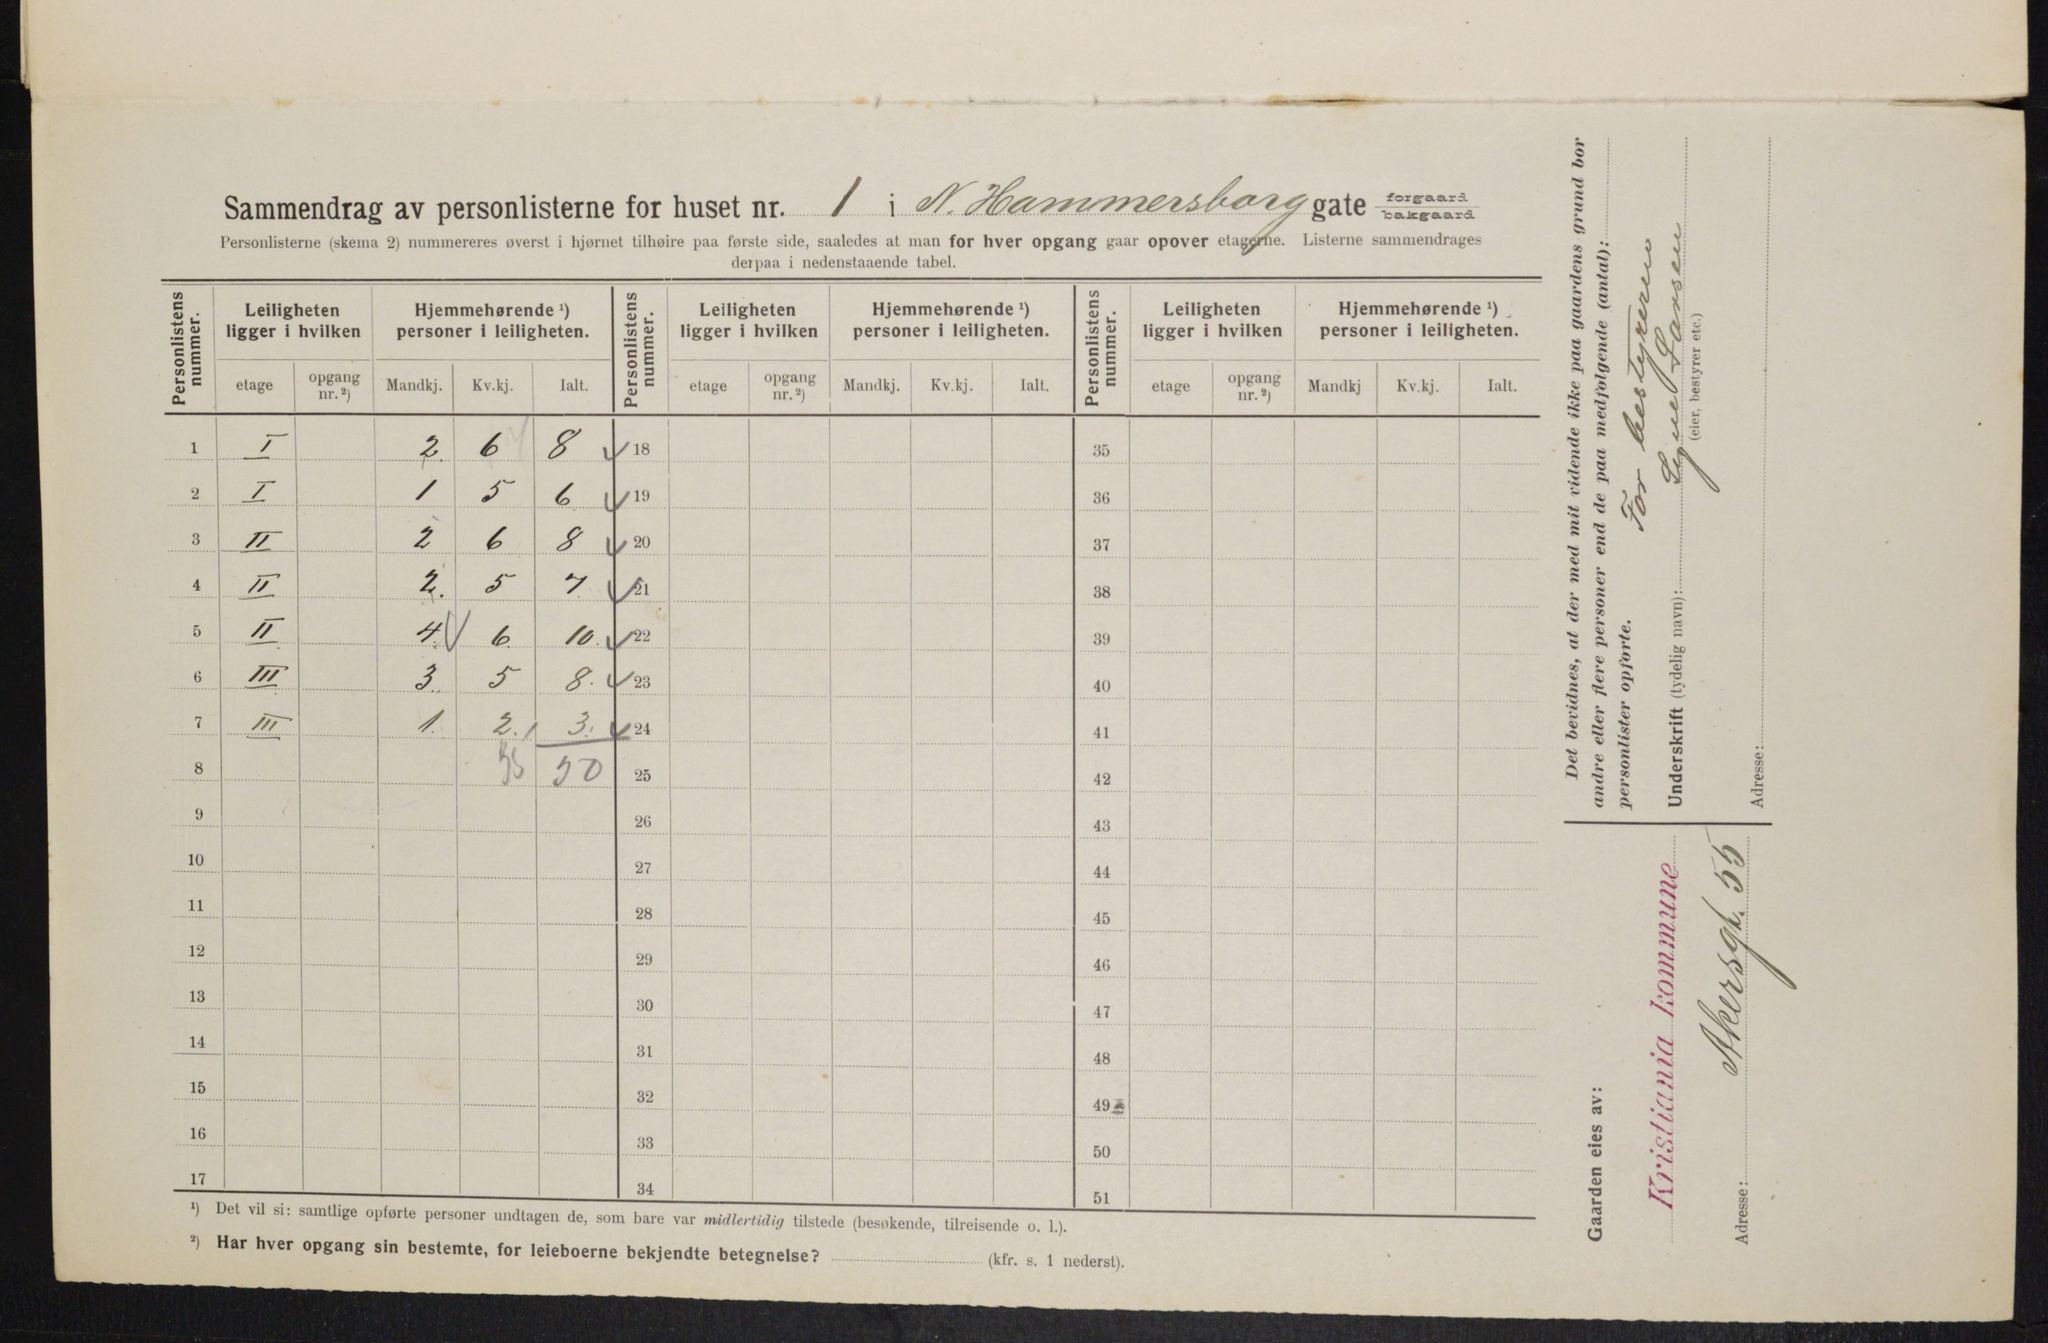 Sammendrag av personlisterne for huset nr. 1 i N. Hammersborg gate forgaard bakgaard
Personlisterne (skema 2) nummereres øverst i hjørnet tilhøire paa første side, saaledes at man for hver opgang gaar opover etagerne. Listerne sammendrages
derpaa i nedenstaaende tabel.
Personlistens nummer. Leiligheten ligger i hvilken Hjemmehørende ¹) personer i leiligheten. Personlistens nummer. Leiligheten ligger i hvilken Hjemmehørende ¹) personer i leiligheten. Personlistens nummer. Leiligheten ligger i hvilken Hjemmehørende ¹) personer i leiligheten.
etage opgang nr. ²) Mandkj. Kv.kj. Ialt. etage opgang nr. ²) Mandkj. Kv.kj. Ialt. etage opgang nr. ²) Mandkj Kv.kj. Ialt.
1 I 2. 6 8 18 35
2 I 1 5 6 19 36
3 II 2 6 8 20 37
4 II 2. 5 7 21 38
5 II 4. 6. 10. 22 39
6 III 3. 5 8. 23 40
7 III 1. 2. 3. 24 41
8 50 25 42
9 26 43
10 27 44
11 28 45
12 29 46
13 30 47
14 31 48
15 32 49
16 33 50
17 34 51
¹) Det vil si: samtlige opførte personer undtagen de, som bare var midlertidig tilstede (besøkende, tilreisende o. l.).
²) Har hver opgang sin bestemte, for leieboerne bekjendte betegnelse? (kfr. s. 1 nederst).
Det bevidnes, at der med mit vidende ikke paa gaardens grund bor
andre eller flere personer end de paa medfølgende (antal):
personlister opførte.
For bestyreren
Underskrift (tydelig navn): Signe Larsen
(eier, bestyrer etc.)
Adresse:
Gaarden eies av:
Kristiania kommune
Adresse: Akersgt. 55